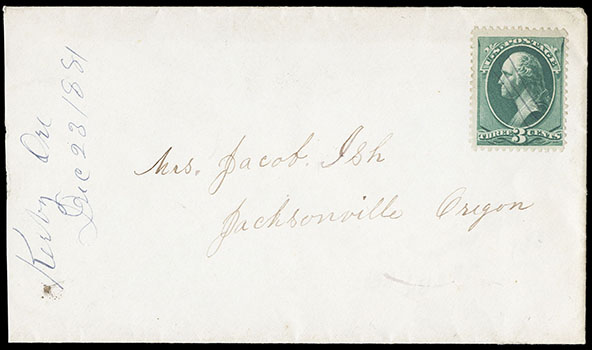 Kerby Ore
Dec 23 1881
U.S. POSTAGE
THREE 3 CENTS
Mrs. Jacob. Ish
Jacksonville Oregon